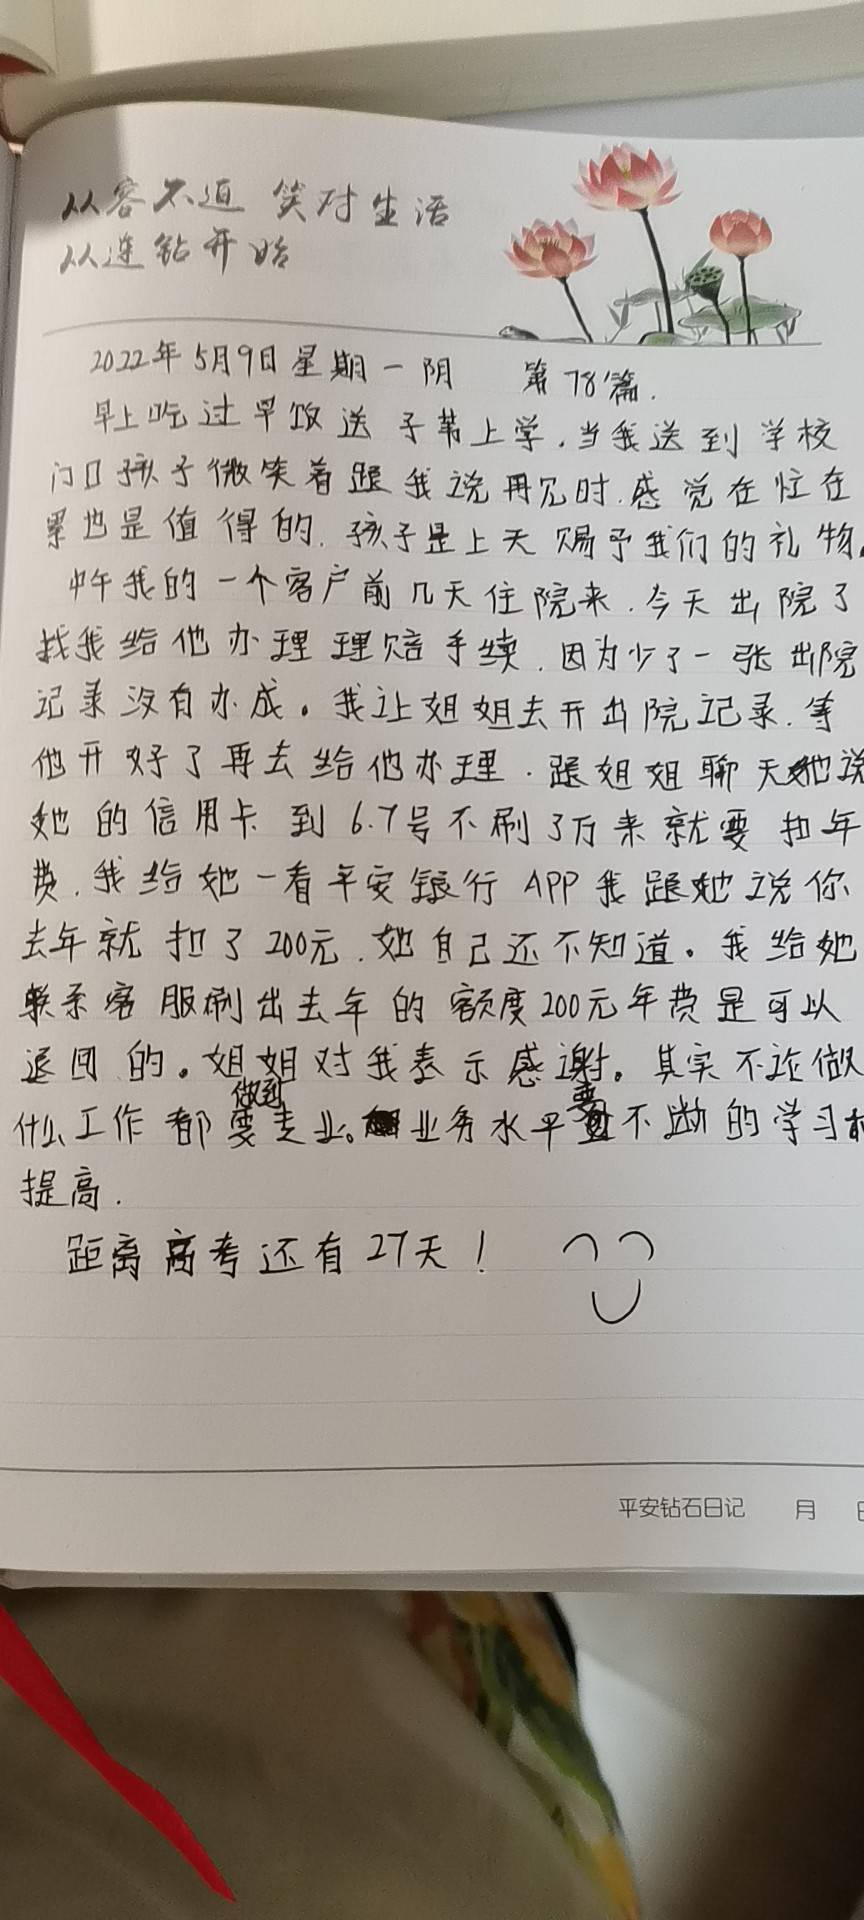 从容不迫 笑对生活
从连钻开始
2022年5月9日星期一阴 第78篇.
早上吃过早饭送子苇上学.当我送到学校
门口孩子微笑着跟我说再见时.感觉在忙在
累也是值得的.孩子是上天赐予我们的礼物.
中午我的一个客户前几天住院来.今天出院了
找我给他办理理赔手续.因为少了一张出院
记录没有办成。我让姐姐去开出院记录.等
他开好了再去给他办理.跟姐姐聊天她说
她的信用卡到6.7号不刷3万来就要扣年
费.我给她一看平安银行APP我跟她说你
去年就扣了200元.她自己还不知道。我给她
联系客服刷出去年的额度200元年费是可以
退回的。姐姐对我表示感谢。其实不论做
什么工作都要做到专业。业务水平要不断的学习
提高.
距离高考还有27天!
平安钻石日记 月